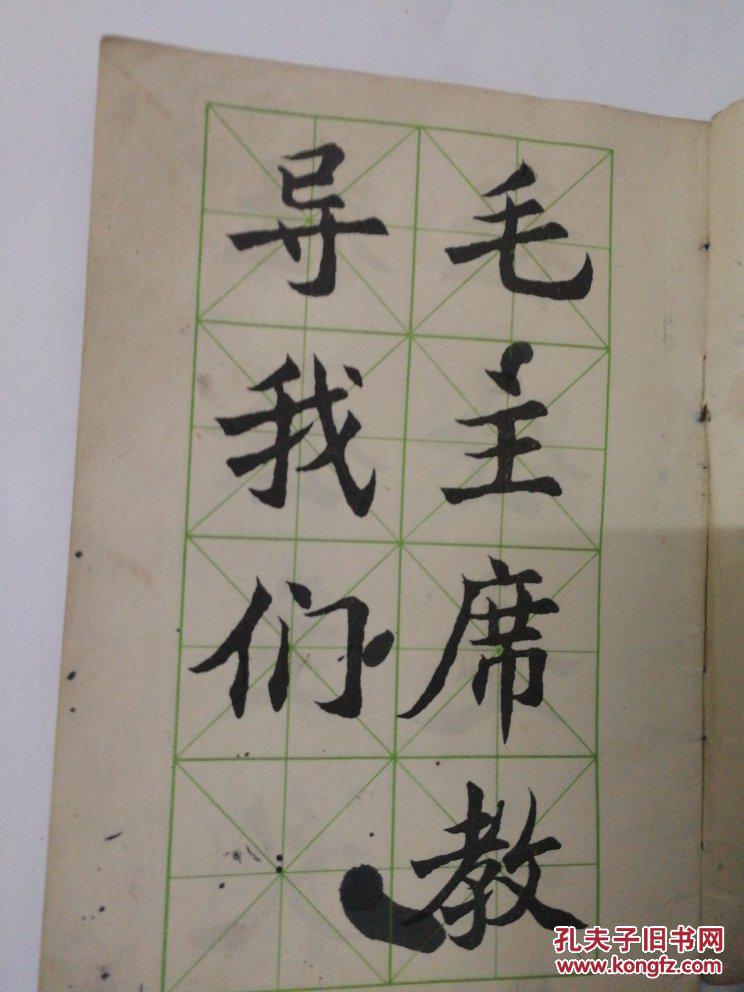 毛主席教
导我们
孔夫子旧书网
www.kongfz.com